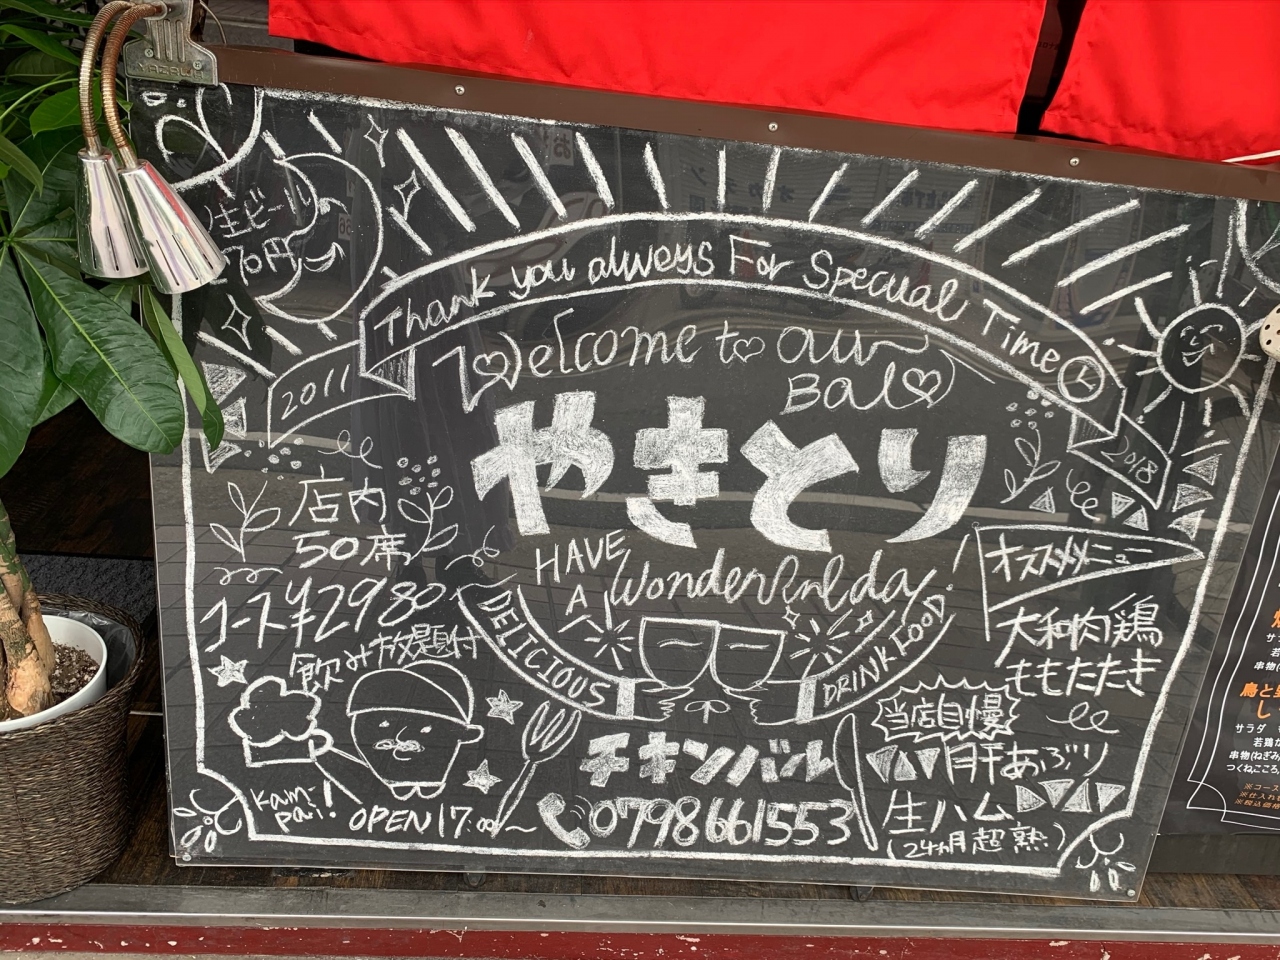 YAZAWA
生ビール
70円
Thank you always For Specual Time
2011
2018
Welcome to our
Bal
やきとり
HAVE
A
Wonderfnl day
DELICIOUS
DRINK FOOD
店内
50席
コース¥2980
飲み放題付
Kam-
pai!
OPEN 17:00〜
チキンバル
0798661553
オススメメニュー
大和肉鶏
ももたたき
当店自慢
肝あぶり
生ハム
(24ヵ月超熟)
サラダ
つくねこころ